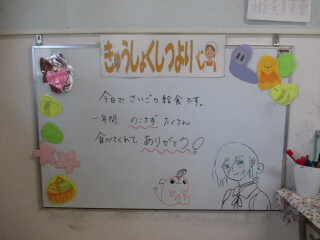 きゅうしょくしつより
今日で さいごの給食です。
一年間 のこさず たくさん
食べてくれて、ありがとう!